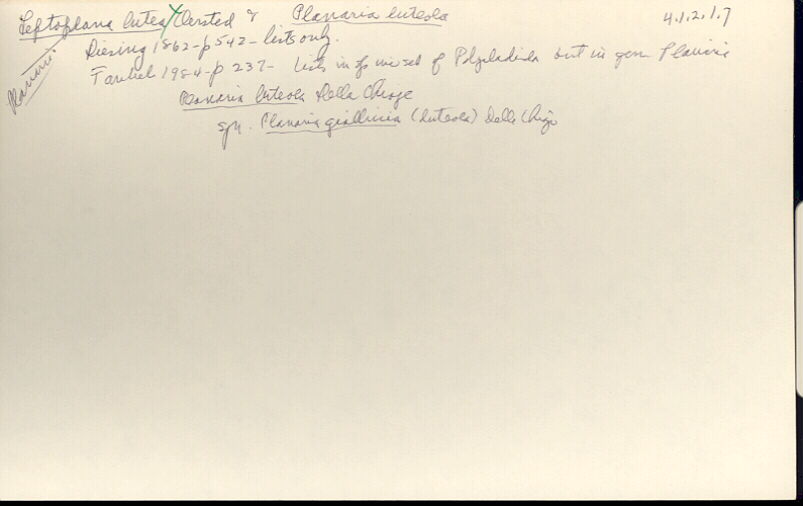 Leptoplana lutea Oersted & Planaria luteola 4.1.2.1.7
Planaria
Diesing 1862 - p 542 - lists only.
Faubel 1984 - p 237 - Lists in sp of Polycladida but in gen Planaria
Planaria luteola Delle Chiaje
syn. Planaria (luteola) Delle Chiaje